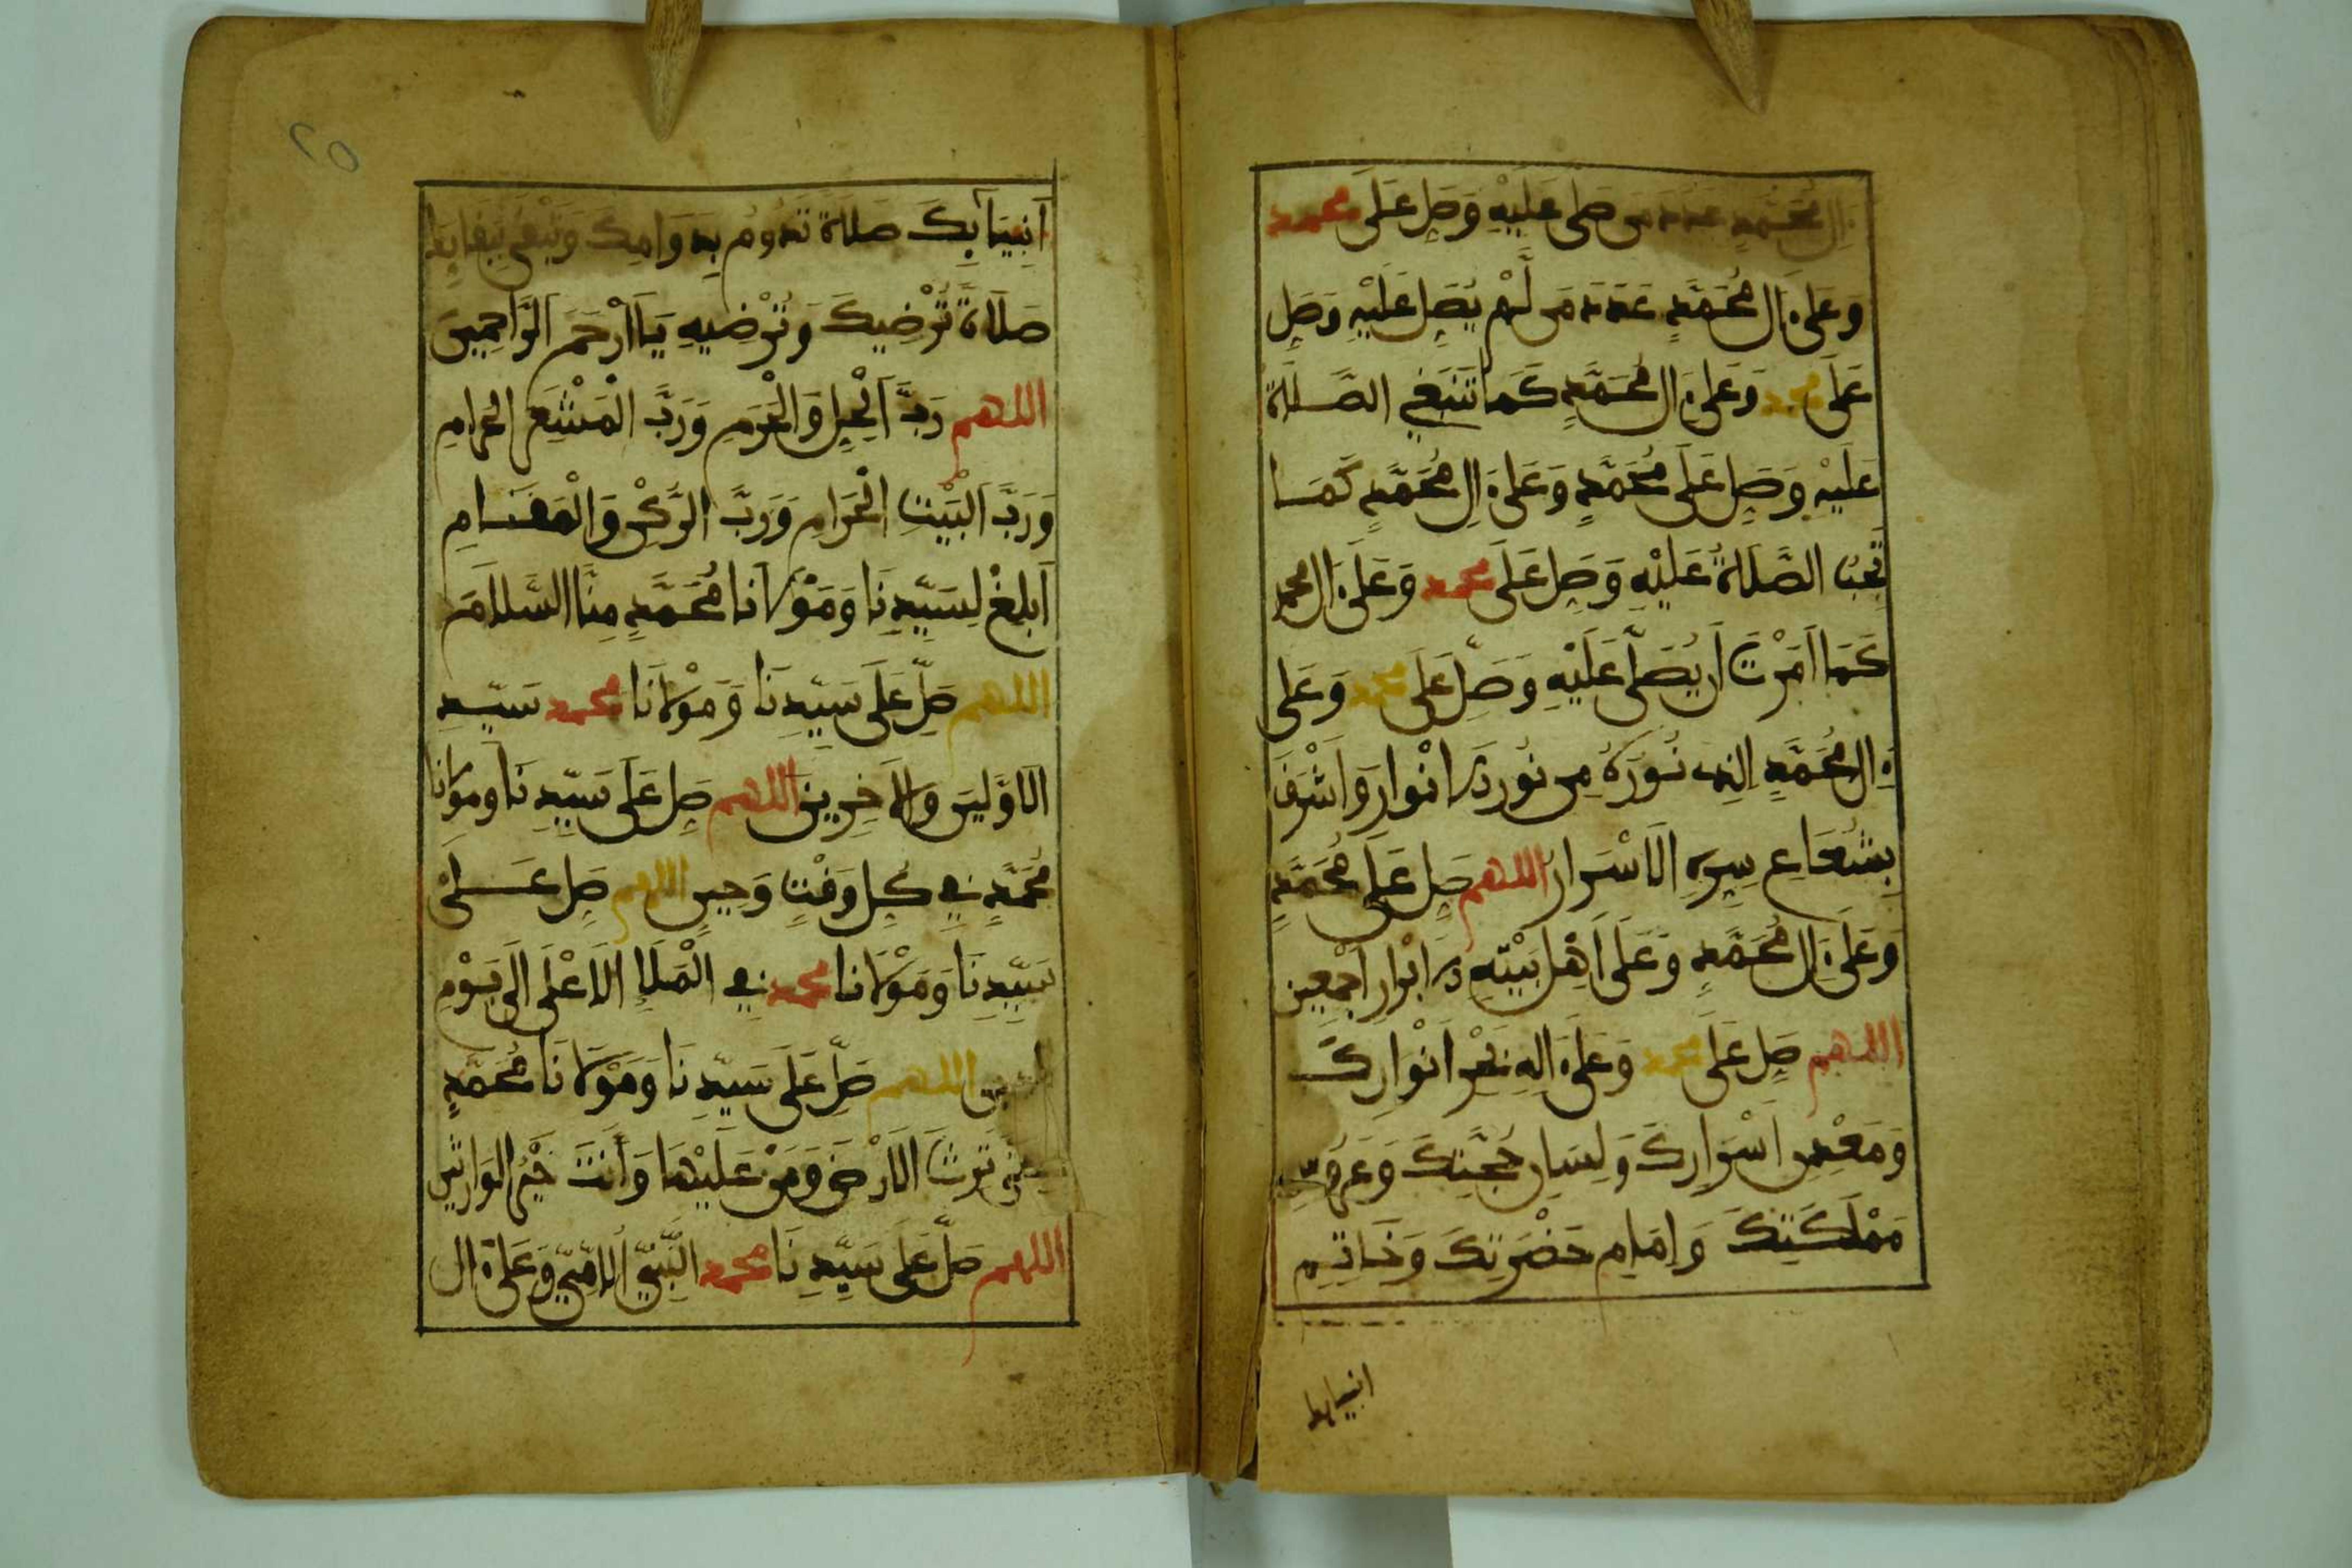 ءَالِ مُحَمَّدٍ عَدَدَ مَن صَلَّى عَلَيْهِ وَصَلِّ عَلَى محمد
وَعَلَى ءَالِ مُحَمَّدٍ عَدَدَ مَن لَّمْ يُصَلِّ عَلَيْهِ وَصَلِّ
عَلَى محمد وَعَلَى ءَالِ مُحَمَّدٍ كَمَا تَنْبَغِي الصَّلَاةُ
عَلَيْهِ وَصَلِّ عَلَى مُحَمَّدٍ وَعَلَى ءَالِ مُحَمَّدٍ كَمَا
تَجِبُ الصَّلَاةُ عَلَيْهِ وَصَلِّ عَلَى محمد وَعَلَى ءَالِ محمد
كَمَا أَمَرْتَ أَن يُصَلَّى عَلَيْهِ وَصَلِّ عَلَى محمد وَعَلَى
ءَالِ مُحَمَّدٍ الذِي نُورُهُ مِن نُورِ الَانْوَارِ وَأَشْرَقَ
بِشُعَاعِ سِرِّهِ الَاسْرَارُ اللهم صَلِّ عَلَى مُحَمَّدٍ
وَعَلَى ءَالِ مُحَمَّدٍ وَعَلَى أَهْلِ بَيْتِهِ الَابْرَارِ أَجْمَعِينَ
اللهم صَلِّ عَلَى محمد وَعَلَى ءَالِهِ بَحْرِ أَنْوَارِكَ
وَمَعْدِنِ أَسْرَارِكَ وَلِسَانِ حُجَّتِكَ وَعَرُوسِ
مَمْلَكَتِكَ وَإِمَامِ حَضْرَتِكَ وَخَاتِمِ
انبيايك
أَنبِيَآئِكَ صَلَاةً تَدُومُ بِدَوَامِكَ وَتَبْقَى بِبَقَائِكَ
صَلَاةً تُرْضِيكَ وَتُرْضِيهِ يَا أَرْحَمَ الرَّاحِمِينَ
اللهم رَبَّ الْحِلِّ وَالْحَرَمِ وَرَبَّ الْمَشْعَرِ الْحَرَامِ
وَرَبَّ الْبَيْتِ الْحَرَامِ وَرَبَّ الرُّكْنِ وَالْمَقَامِ
أَبْلِغْ لِسَيِّدِنَا وَمَوْلَانَا مُحَمَّدٍ مِنَّا السَّلَامَ
اللهم صَلِّ عَلَى سَيِّدِنَا وَمَوْلَانَا محمد سَيِّدِ
الَاوَّلِينَ وَالَاخِرِينَ اللهم صَلِّ عَلَى سَيِّدِنَا وَمَوْلَانَا
مُحَمَّدٍ فِي كُلِّ وَقْتٍ وَحِينٍ اللهم صَلِّ عَلَى
سَيِّدِنَا وَمَوْلَانَا محمد فِي الْمَلَإِ الَاعْلَى إِلَى يَوْمِ
الدِّينِ اللهم صَلِّ عَلَى سَيِّدِنَا وَمَوْلَانَا مُحَمَّدٍ
حَتَّى تَرِثَ الَارْضَ وَمَنْ عَلَيْهَا وَأَنتَ خَيْرُ الْوَارِثِينَ
اللهم صَلِّ عَلَى سَيِّدِنَا محمد النَّبِيِّ الُامِّيِّ وَعَلَى ءَالِ
٢٥